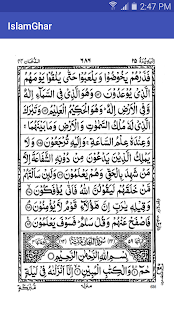 2:47 PM
IslamGhar
الدخان ٤٤
٦٨٩
اليه يرد ٢٥
فَذَرْهُمْ يَخُوضُوا وَيَلْعَبُوا حَتّٰى يُلٰقُوا يَوْمَهُمُ
الَّذِیْ يُوْعَدُوْنَ وَهُوَ الَّذِیْ فِی السَّمَآءِ اِلٰهٌ وَّ
فِی الْاَرْضِ اِلٰهٌ وَهُوَ الْحَكِيْمُ الْعَلِيْمُ وَتَبٰرَكَ
الَّذِیْ لَهٗ مُلْكُ السَّمٰوٰتِ وَالْاَرْضِ وَمَا بَيْنَهُمَا
وَعِنْدَهٗ عِلْمُ السَّاعَةِ وَاِلَيْهِ تُرْجَعُوْنَ وَلَا يَمْلِكُ
الَّذِيْنَ يَدْعُوْنَ مِنْ دُوْنِهِ الشَّفَاعَةَ اِلَّا
مَنْ شَهِدَ بِالْحَقِّ وَهُمْ يَعْلَمُوْنَ وَلَئِنْ سَاَلْتَهُمْ
مَّنْ خَلَقَهُمْ لَيَقُوْلُنَّ اللّٰهُ فَاَنّٰى يُؤْفَكُوْنَ
وَقِيْلِهٖ يٰرَبِّ اِنَّ هٰٓؤُلَآءِ قَوْمٌ لَّا يُؤْمِنُوْنَ
فَاصْفَحْ عَنْهُمْ وَقُلْ سَلٰمٌ فَسَوْفَ يَعْلَمُوْنَ
بِسْمِ اللّٰهِ الرَّحْمٰنِ الرَّحِيْمِ
حٰمٓ وَالْكِتٰبِ الْمُبِيْنِ اِنَّآ اَنْزَلْنٰهُ فِیْ لَيْلَةٍ